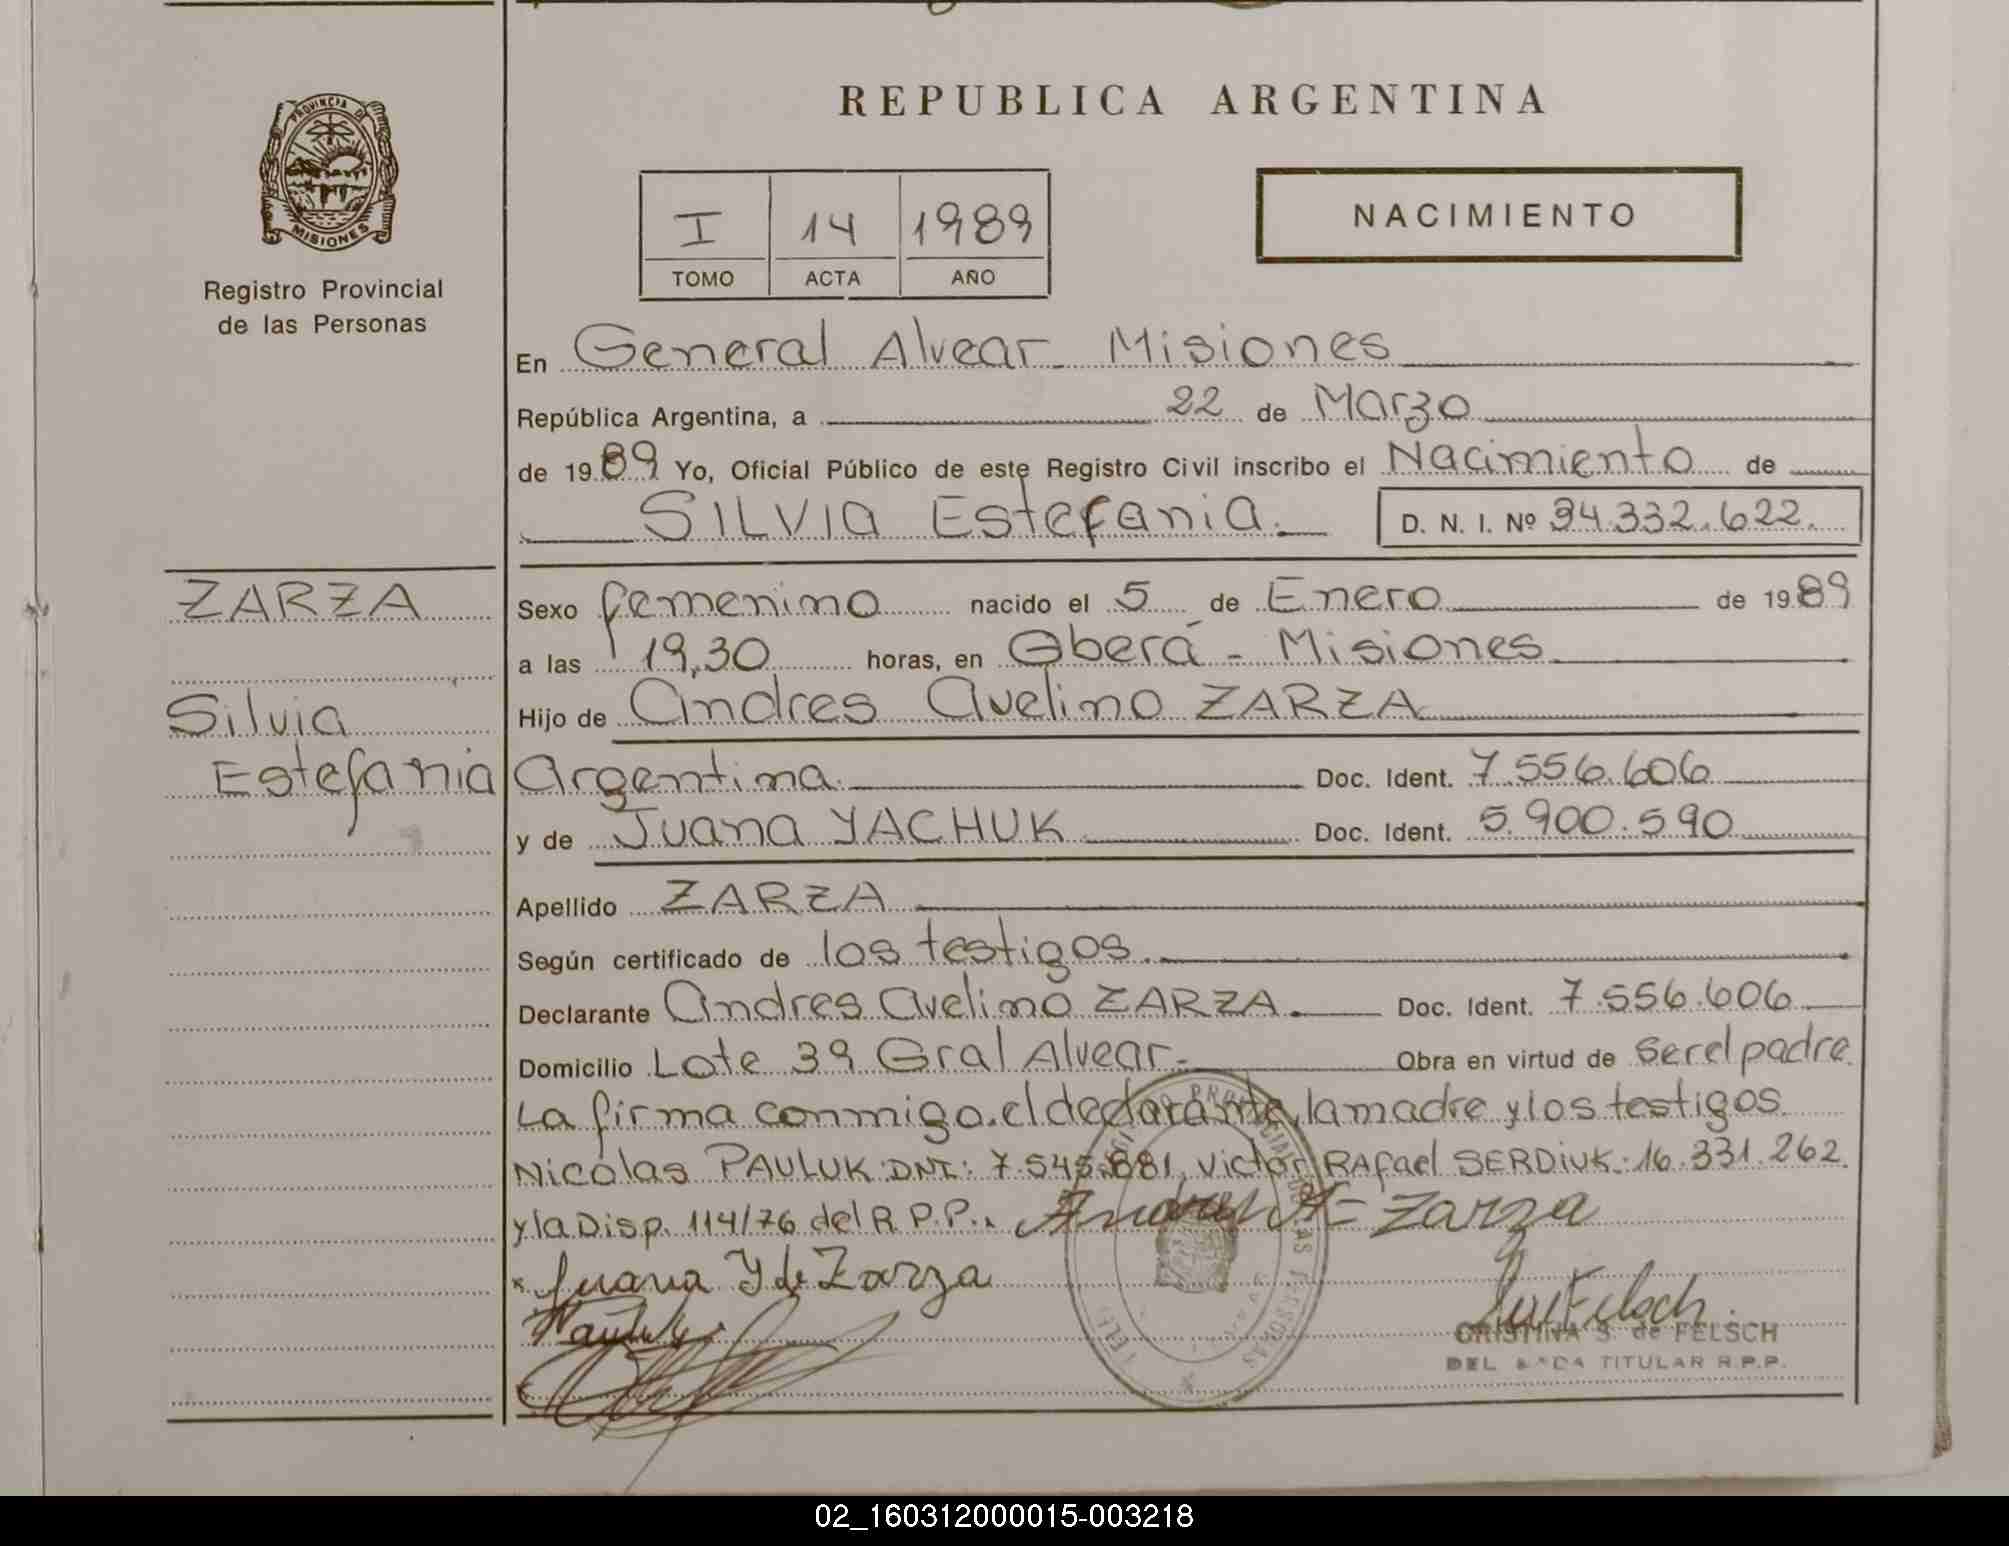 REPUBLICA ARGENTINA
PROVINCIA DE
MISIONES
Registro Provincial
de las Personas
I 14 1989
TOMO ACTA AÑO
NACIMIENTO
En General Alvear - Misiones
República Argentina, a 22 de Marzo
de 1989 Yo, Oficial Público de este Registro Civil inscribo el Nacimiento de
SILVIA Estefania. D. N. I. Nº 34.332.622.
ZARZA
Silvia
Estefania
Sexo femenino nacido el 5 de Enero de 1989
a las 19,30 horas, en Oberá - Misiones
Hijo de Andres Avelino ZARZA
Argentina. Doc. Ident. 7.556.606
y de Juana YACHUK Doc. Ident. 5.900.590
Apellido ZARZA
Según certificado de los testigos.
Declarante Andres Avelino ZARZA. Doc. Ident. 7.556.606
Domicilio Lote 39 Gral Alvear.- Obra en virtud de ser el padre.
La firma conmigo, el declarante, la madre y los testigos
Nicolas PAULUK DNI: 7.545.881, Victor RAfael SERDIUK: 16.331.262
y la Disp. 114/76 del R.P.P.. Andres A= Zarza
x Juana Y de Zarza
CRISTINA S. de FELSCH
TITULAR R.P.P.
02_160312000015-003218